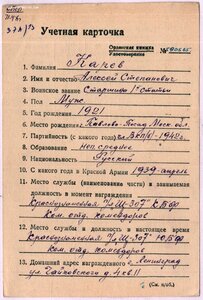 Учетная карточка
Орденская книжка
Удостоверение №
1. Фамилия Карев
2. Имя и отчество Алексей Степанович
3. Воинское звание Старшина 1й статьи
4. Пол Муж 
5. Год рождения 1921
6. Место рождения Павлово-Посад Моск. обл
7. Партийность (с какого года) чл. ВКП(б) - 1942г.
8. Образование неп среднее
9. Национальность Русский
10. С какого года в Красной Армии 1939 апрель
11. Место службы (наименование части) и занимаемая
должность в момент награждения
Краснознаменная п/л Щ-307 КБФ
Ком. отд. комендоров
12. Место службы и должность в настоящее время
Краснознаменная п/л Щ-307 ЮБФ
Ком. отд. комендоров
13. Домашний адрес награжденного г. Ленинград
ул Чайковского д.
(См. н/об.)